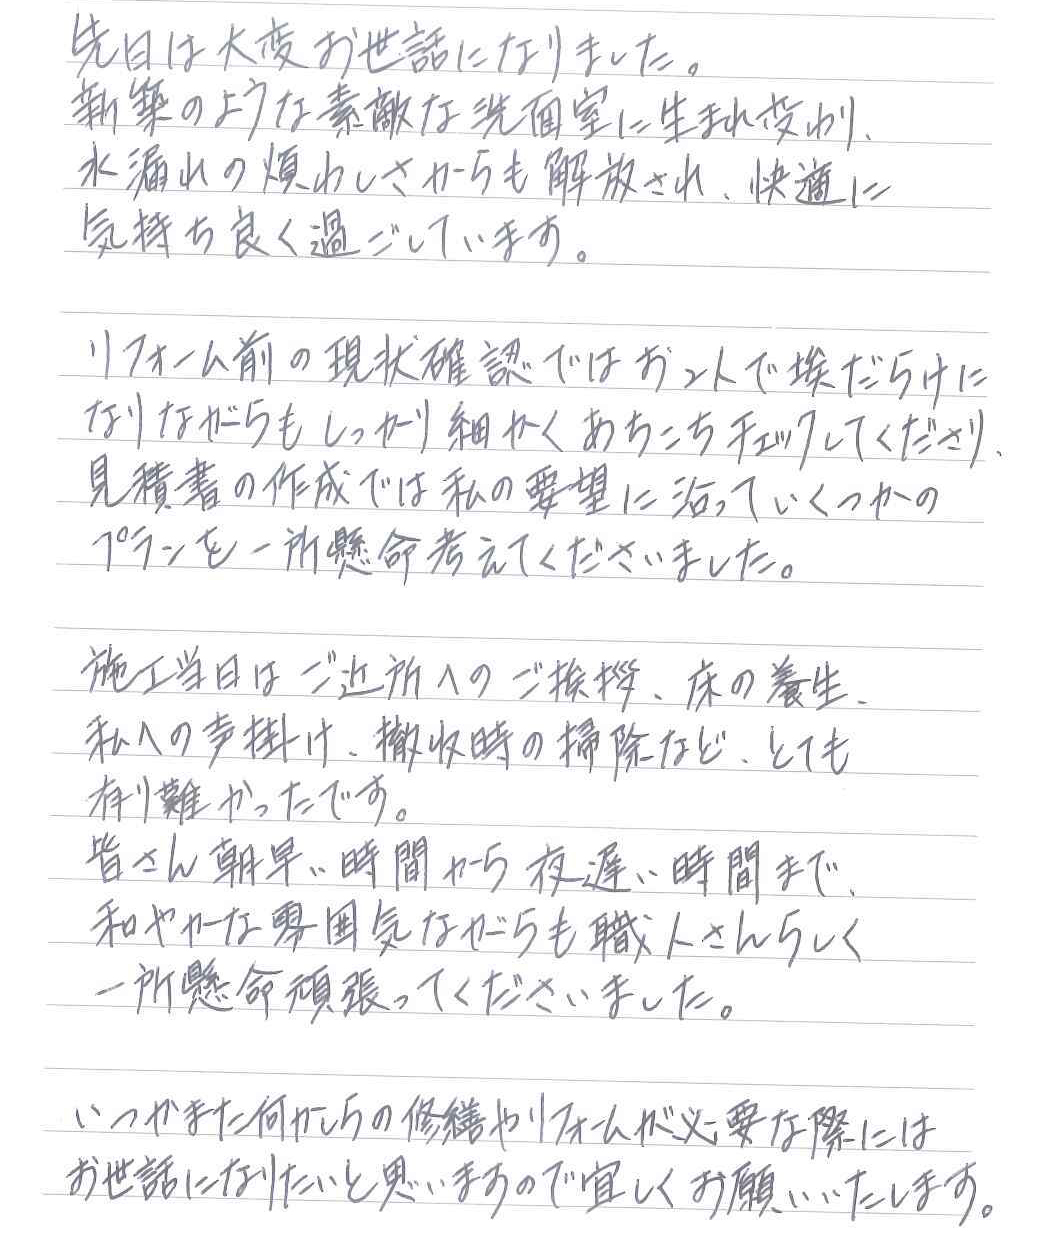 先日は大変お世話になりました。
新築のような素敵な洗面室に生まれ変わり、
水漏れの煩わしさからも解放され、快適に
気持ち良く過ごしています。
リフォーム前の現状確認ではお2人で埃だらけに
なりながらもしっかり細かくあちこちチェックしてくださり、
見積書の作成では私の要望に沿っていくつかの
プランを一所懸命考えてくださいました。
施工当日はご近所へのご挨拶、床の養生、
私への声掛け、撤収時の掃除など、とても
有り難かったです。
皆さん朝早い時間から夜遅い時間まで、
和やかな雰囲気ながらも職人さんらしく
一所懸命頑張ってくださいました。
いつかまた何かしらの修繕やリフォームが必要な際には
お世話になりたいと思いますので宜しくお願いいたします。